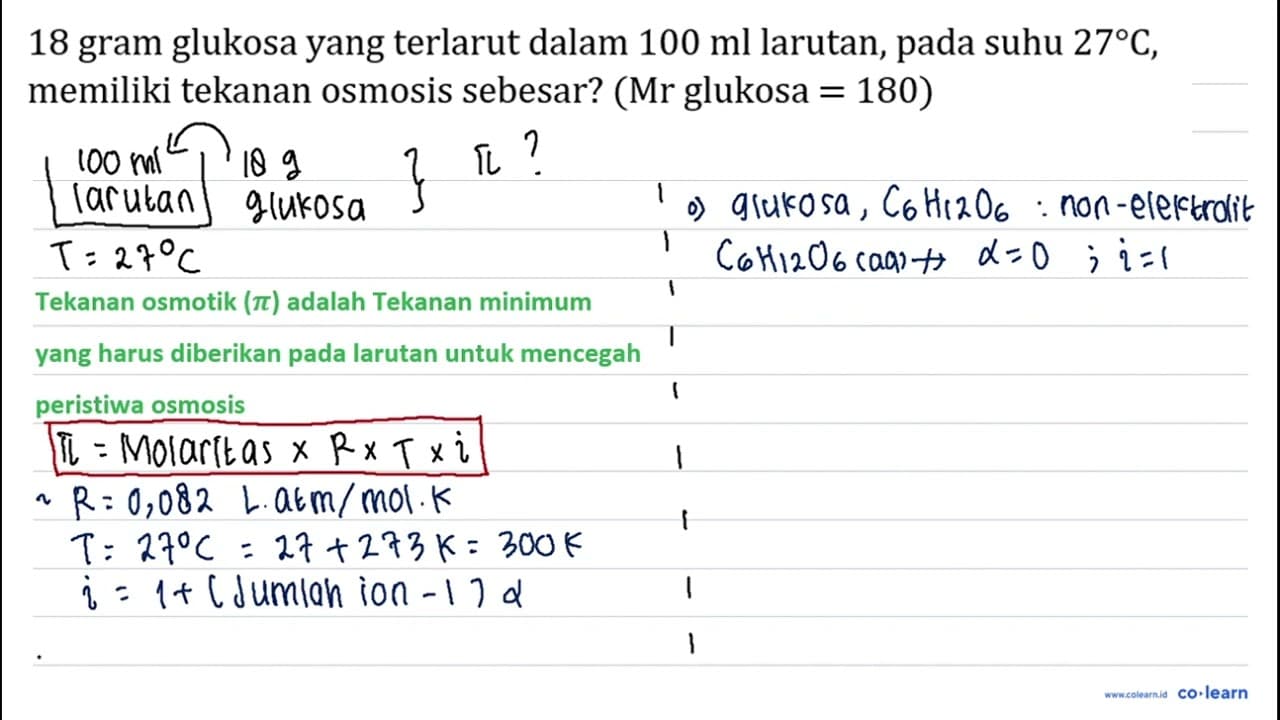 18 gram glukosa yang terlarut dalam 100 ml larutan, pada suhu 27°C,
memiliki tekanan osmosis sebesar? (Mr glukosa = 180)
100 ml
larutan
18 g
glukosa
π ?
T = 27°C
Tekanan osmotik (π) adalah Tekanan minimum
yang harus diberikan pada larutan untuk mencegah
peristiwa osmosis
π = Molaritas × R × T × i
~ R = 0,082 L.atm/mol.K
T = 27°C = 27 + 273 K = 300 K
i = 1 + (Jumlah ion - 1) α
o) glukosa, C6H12O6 : non-elektrolit
C6H12O6 (aq) ↛ α = 0 ; i = 1
www.colearn.id co·learn